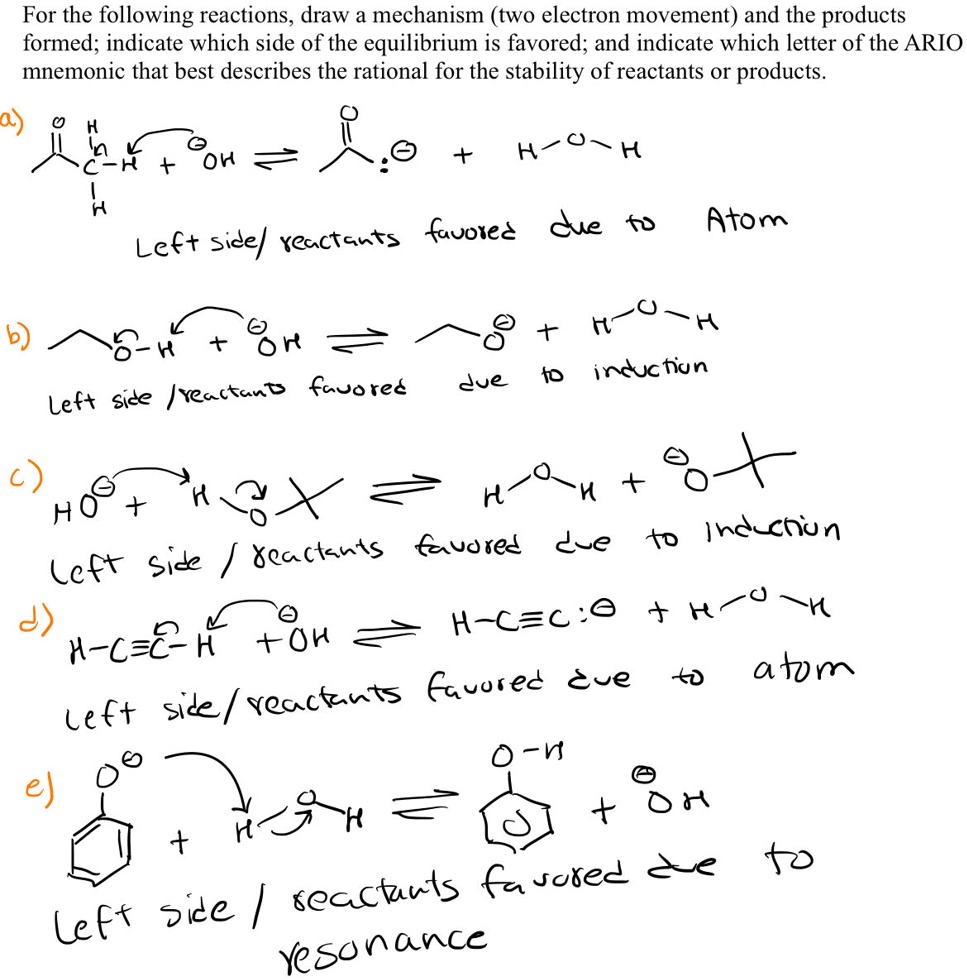 For the following reactions, draw a mechanism (two electron movement) and the products
formed; indicate which side of the equilibrium is favored; and indicate which letter of the ARIO
mnemonic that best describes the rational for the stability of reactants or products.
a)
O H C-H H + ⊖OH ⇌ O :⊖ + H-O-H
Left side/ reactants favored due to Atom
b)
O-H + ⊖OH ⇌ O⊖ + H-O-H
Left side /reactants favored due to induction
c)
HO⊖ + H O ⇌ H-O-H + ⊖O
Left side / reactants favored due to induction
d)
H-C≡C-H + ⊖OH ⇌ H-C≡C:⊖ + H-O-H
Left side/reactants favored due to atom
e)
O⊖ + H-O-H ⇌ O-H + ⊖OH
Left side / reactants favored due to
resonance